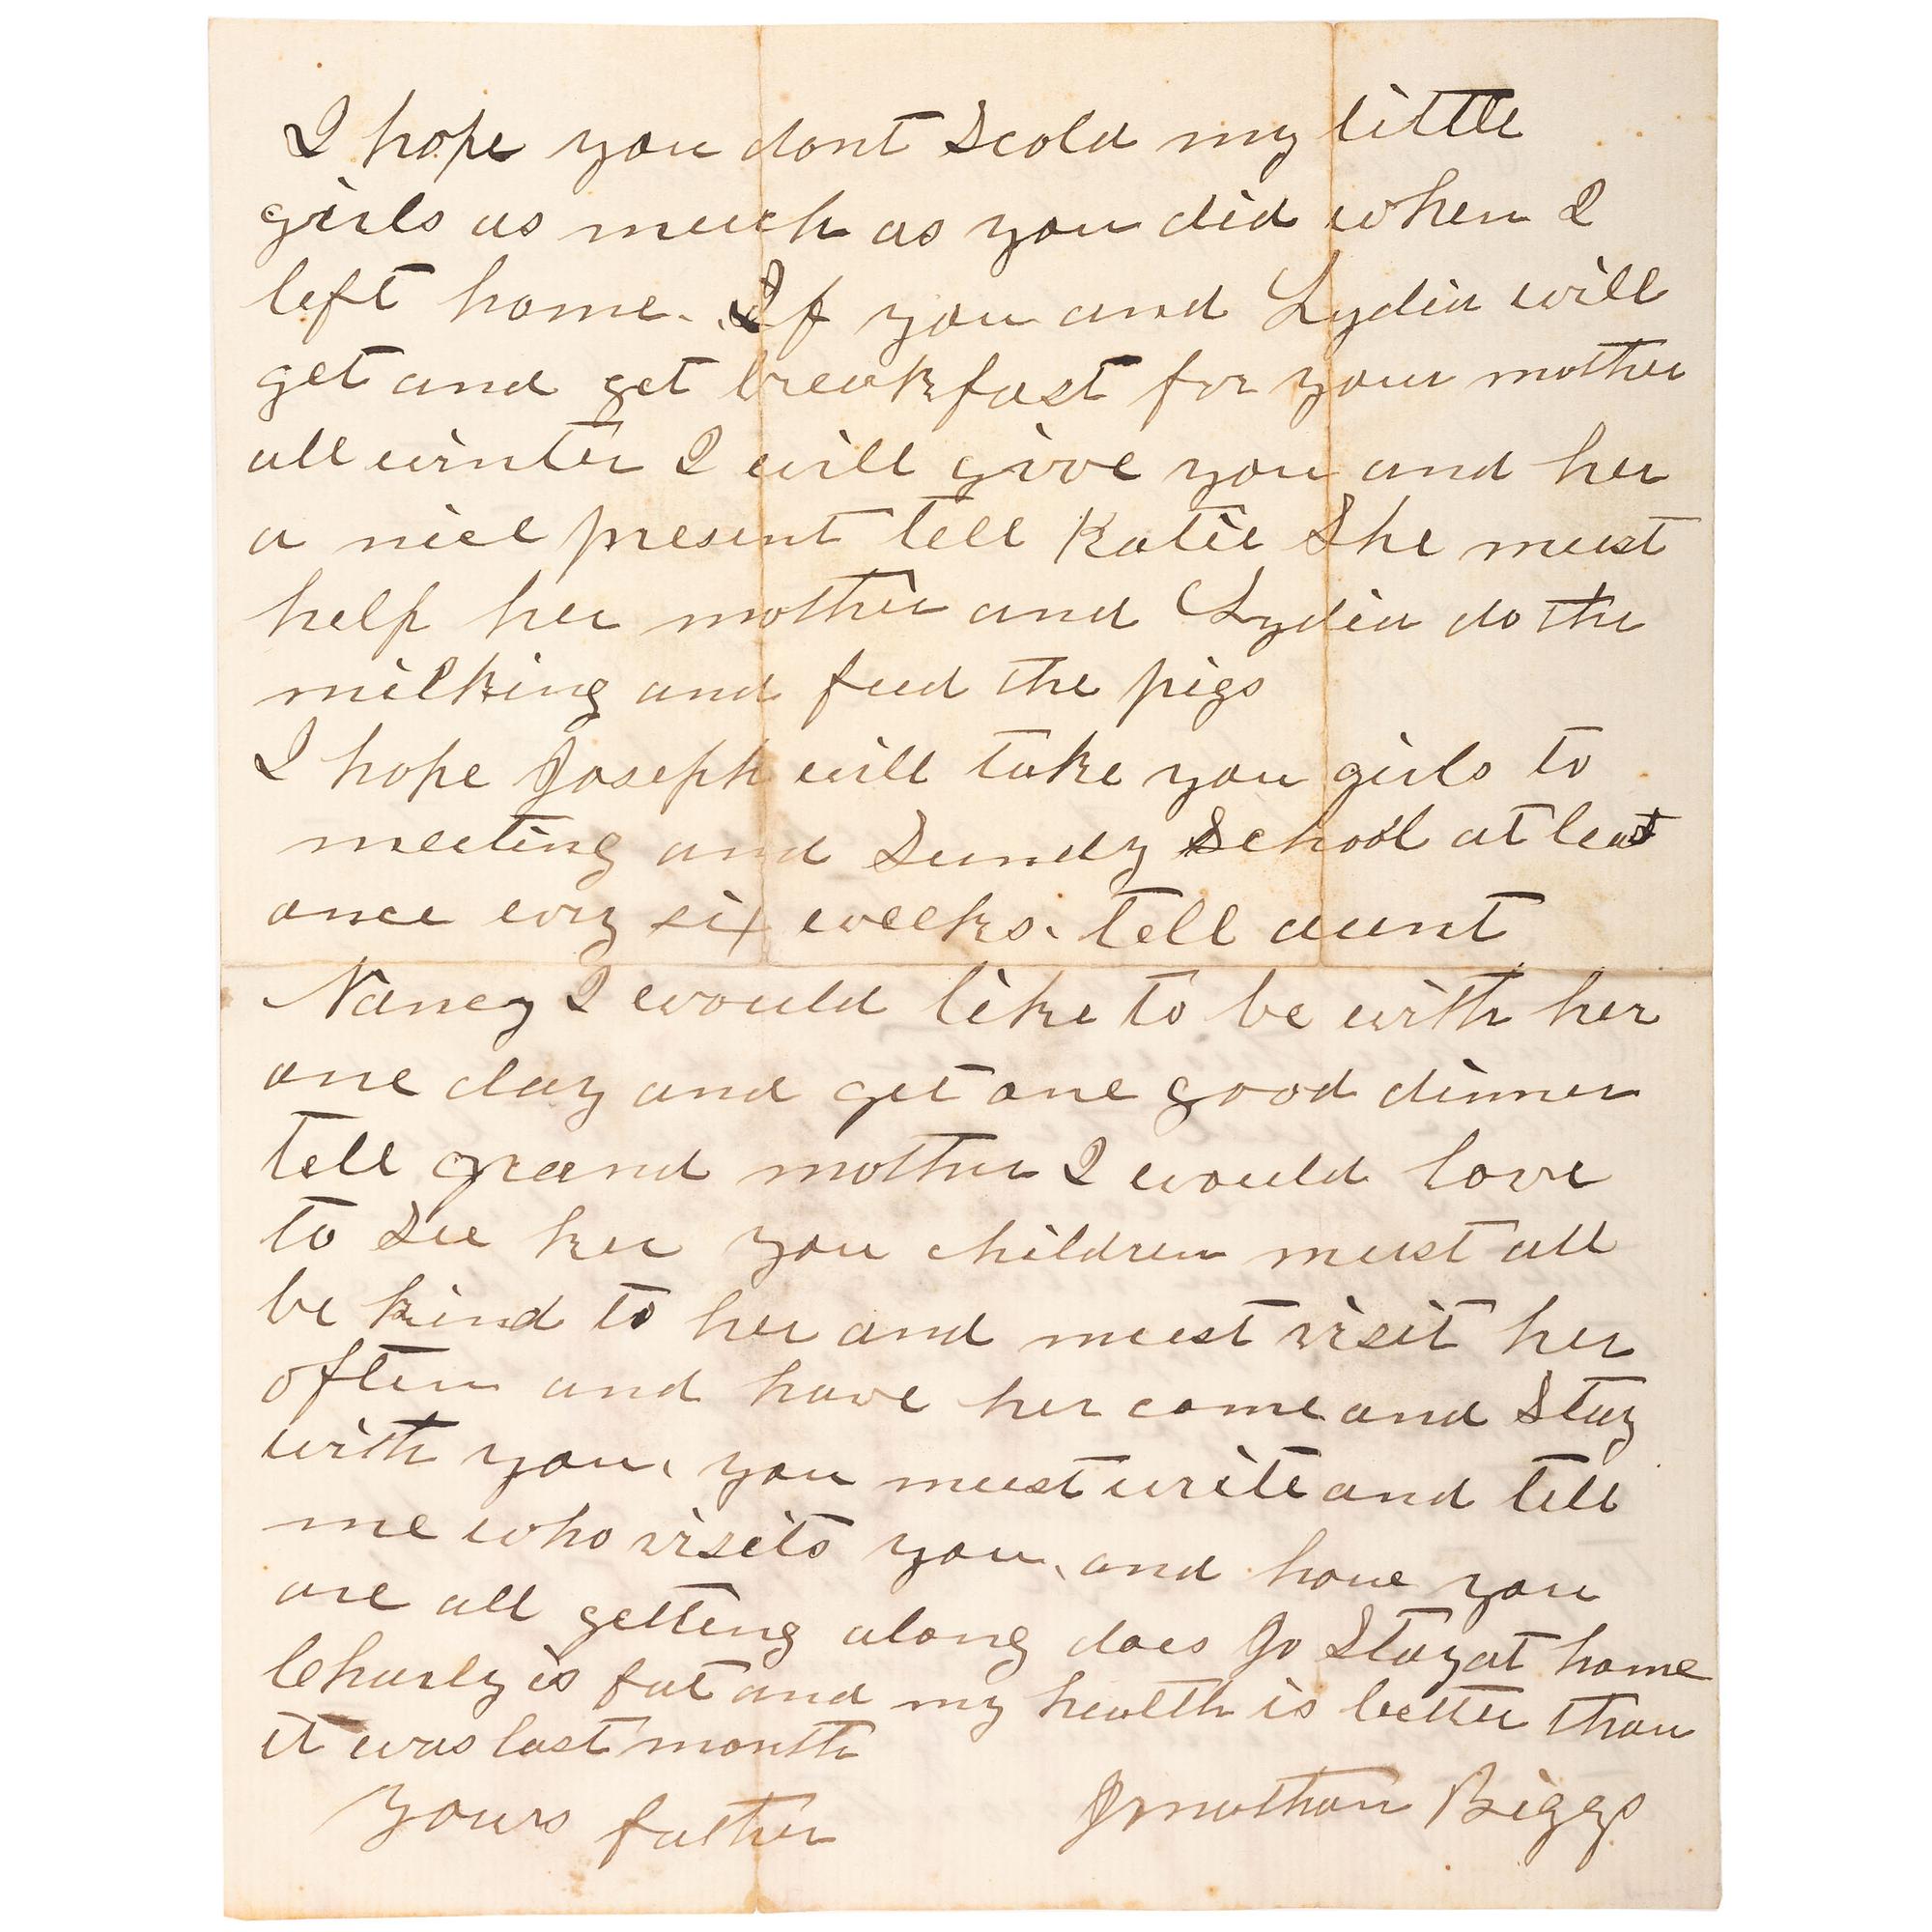 I hope you dont Scold my little
girls as much as you did when I
left home. If you and Lydia will
get and get breakfast for your mother
all winter I will give you and her
a nice present tell Katie She must
help her mother and Lydia do the
milking and feed the pigs
I hope Joseph will take you girls to
meeting and Sundy School at least
once evry six weeks. tell aunt
Nancy I would like to be with her
one day and get one good dinner
tell grand mother I would love
to See her you children must all
be kind to her and must visit her
often and have her come and Stay
with you. you must write and tell
me who visits you. and how you
are all getting along does Jo Stay at home
Charly is fat and my health is better than
it was last month
Yours father Jonathan Biggs